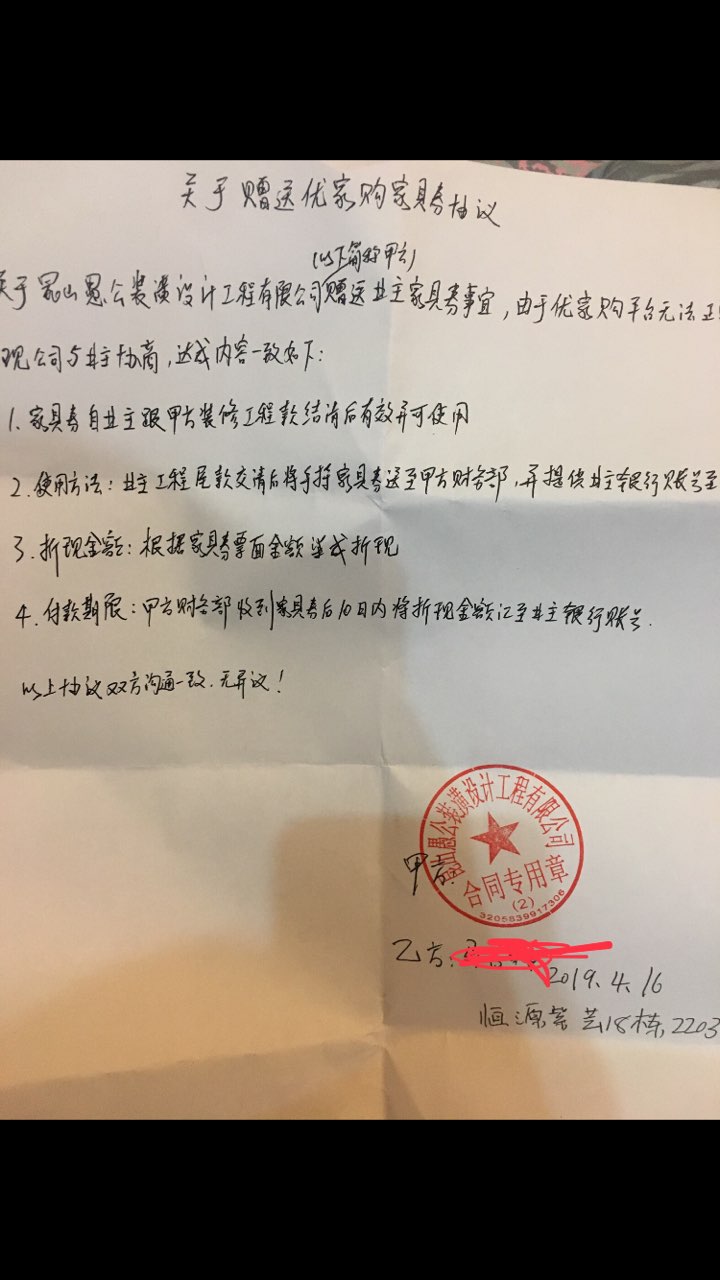 关于赠送优家购家具券协议
(以下简称甲方)
关于昆山愚公装潢设计工程有限公司赠送业主家具券事宜,由于优家购平台无法正
现公司与业主协商,达成内容一致如下:
1.家具券自业主跟甲方装修工程款结清后有效并可使用
2.使用方法:业主工程尾款交清后将手持家具券送至甲方财务部,并提供业主银行账号至
3.折现金额:根据家具券票面金额 折现
4.付款期限:甲方财务部收到家具券后10日内将折现金额汇至业主银行账号.
以上协议双方沟通一致.无异议!
昆山愚公装潢设计工程有限公司
甲方:
合同专用章
(2)
3205839917306
乙方:
2019.4.16
恒源 18栋,2203